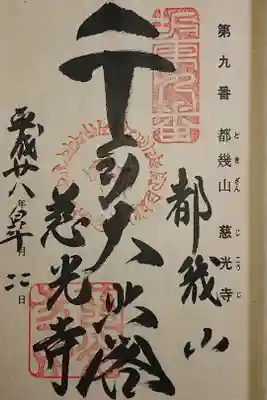 第九番 都幾山 慈光寺
ときざん じこうじ
坂東九番
都幾山
千手大悲
慈光寺
平成廿八年 月 日